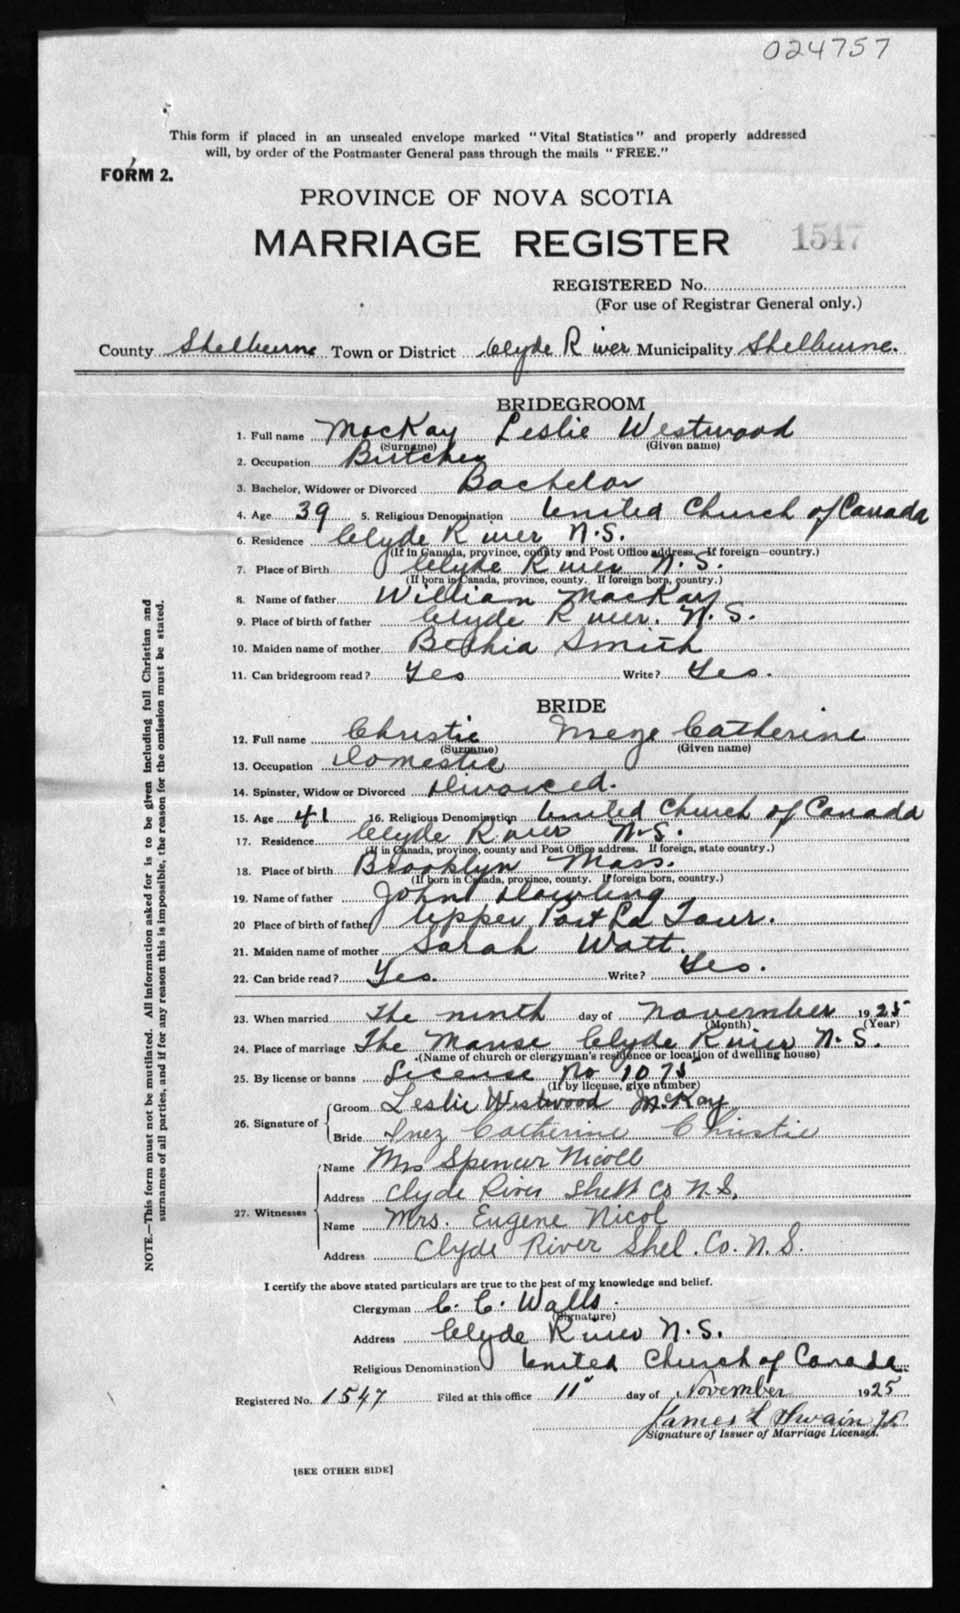 024757
This form if placed in an unsealed envelope marked "Vital Statistics" and properly addressed
will, by order of the Postmaster General pass through the mails "FREE."
FORM 2.
PROVINCE OF NOVA SCOTIA
MARRIAGE REGISTER 1547
REGISTERED No.
(For use of Registrar General only.)
County Shelburne Town or District Clyde River Municipality Shelburne.
BRIDEGROOM
1. Full name MacKay Leslie Westwood
(Surname) (Given name)
2. Occupation Butcher
3. Bachelor, Widower or Divorced Bachelor
4. Age 39 5. Religious Denomination United Church of Canada
6. Residence Clyde River N.S.
(If in Canada, province, county and Post Office address. If foreign—country.)
7. Place of Birth Clyde River N.S.
(If born in Canada, province, county. If foreign born, country.)
8. Name of father William MacKay
9. Place of birth of father Clyde River. N.S.
10. Maiden name of mother Bethia Smith
11. Can bridegroom read? Yes Write? Yes.
BRIDE
12. Full name Christie Inez Catherine
(Surname) (Given name)
13. Occupation Domestic
14. Spinster, Widow or Divorced Divorced.
15. Age 41 16. Religious Denomination United Church of Canada
17. Residence Clyde River N.S.
(If in Canada, province, county and Post Office address. If foreign, state country.)
18. Place of birth Brooklyn Mass.
(If born in Canada, province, county. If foreign born, country.)
19. Name of father John Dowling
20 Place of birth of father Upper Port La Tour.
21. Maiden name of mother Sarah Watt.
22. Can bride read? Yes. Write? Yes.
23. When married The ninth day of November 1925
(Month) (Year)
24. Place of marriage The Manse Clyde River N.S.
(Name of church or clergyman's residence or location of dwelling house)
25. By license or banns License No 1075
(If by license, give number)
26. Signature of Groom Leslie Westwood McKay
Bride Inez Catherine Christie
27. Witnesses Name Mrs Spencer Nicoll
Address Clyde River Shel Co N.S.
Name Mrs. Eugene Nicol
Address Clyde River Shel. Co. N.S.
I certify the above stated particulars are true to the best of my knowledge and belief.
Clergyman C. C. Walls.
(Signature)
Address Clyde River N.S.
Religious Denomination United Church of Canada.
Registered No. 1547 Filed at this office 11" day of November 1925
James L Swain JP.
Signature of Issuer of Marriage Licenses.
[SEE OTHER SIDE]
NOTE.—This form must not be mutilated. All information asked for is to be given including full Christian and
surnames of all parties, and if for any reason this is impossible, the reason for the omission must be stated.